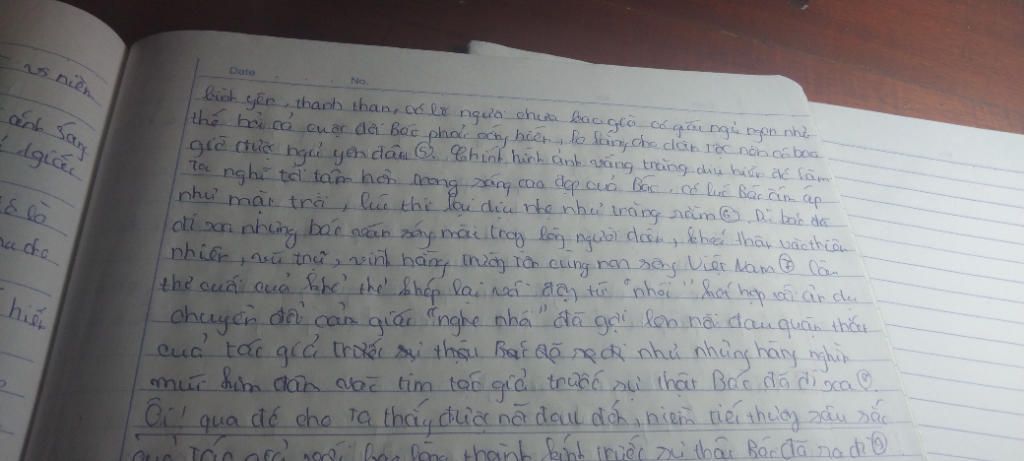 vs niềm
ánh sáng
Date No.
bình yên, thanh thản, có lẽ người chưa bao giờ có giấc ngủ ngon như
thế bởi cả cuộc đời Bác phải cống hiến, lo lắng cho dân tộc nên có bao
giờ được ngủ yên đâu ⑤. Chính hình ảnh vầng trăng dịu hiền đã làm
ta nghĩ tới tâm hồn trong sáng cao đẹp của Bác, có lúc Bác ấm áp
như mặt trời, lúc thì lại dịu nhẹ như trăng rằm ⑥. Dù bác đã
đi xa nhưng bác sống mãi trong lòng người dân, vào thiên
nhiên, vũ trụ, vĩnh hằng trường tồn cùng non sông Việt Nam ⑦ Câu
thơ cuối của khổ thơ khép lại với động từ "nhói" kết hợp với ẩn dụ
chuyển đổi cảm giác "nghe nhói" đã gợi lên nỗi đau quặn thắt
của tác giả trước sự thật Bác đã ra đi như những hàng nghìn
mũi kim đâm vào tim tác giả trước sự thật Bác đã đi xa ⑧.
Ôi! qua đó cho ta thấy được nỗi đau đớn, niềm tiếc thương sâu sắc
của tác giả lòng thành kính trước sự thật Bác đã ra đi ⑨